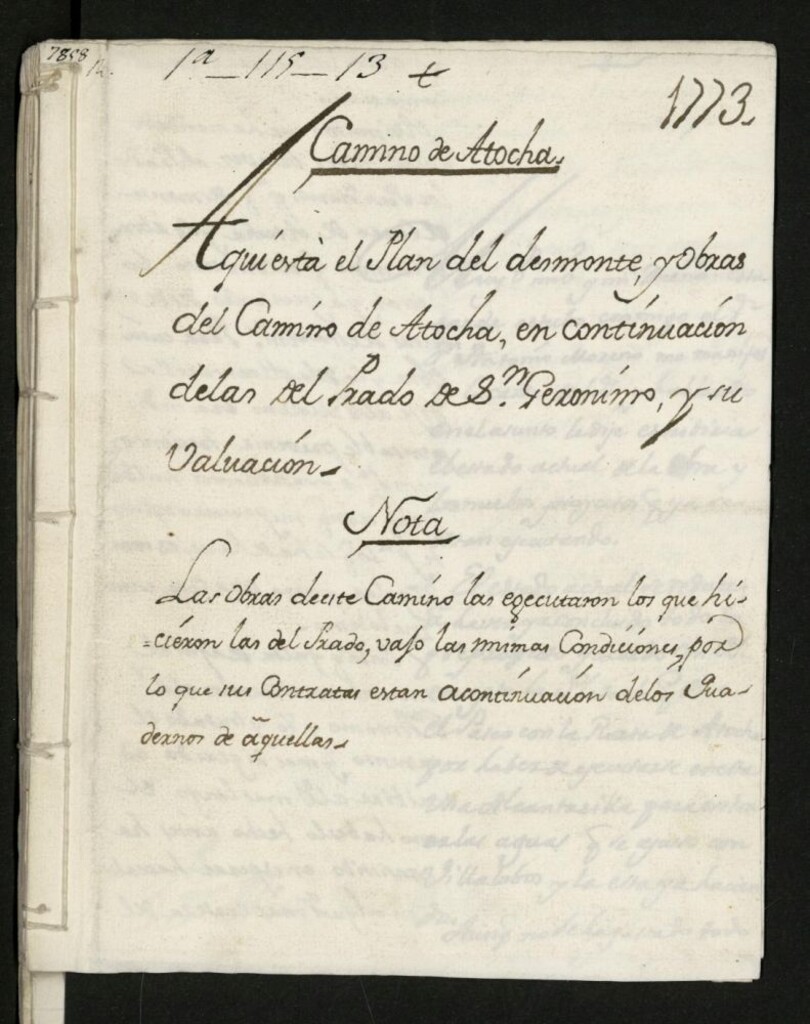 7858
1ª_115_13 +
1773.
Camino de Atocha.
Aqui està el Plan del desmonte, y Obras
del Camino de Atocha, en continuación
delas del Prado de Sn. Geronimo, y su
Valuación.
Nota
Las Obras deeste Camino las egecutaron los que hi-
=cieron las del Prado, vaso las mimas Condiciones, por
lo que sus Contratas estan acontinuación delos Qua-
dernos de aquellas.